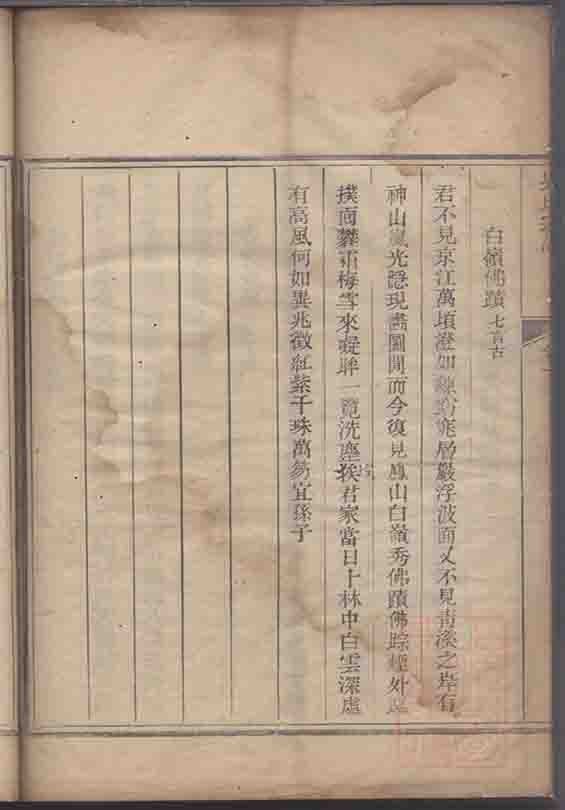 白嶺佛蹟 七言古
君不見京江萬頃澄如練玲瓏層巖浮波面又不見青溪之岸有
神山嵐光隱現畫圖間而今復見鳳山白嶺秀佛蹟佛踪經外
撲面霏霜梅雪來凝眸一覽洗塵埃君家當日卜林中白雲深處
有高風何如異兆徵紅紫千珠萬笏宜孫子